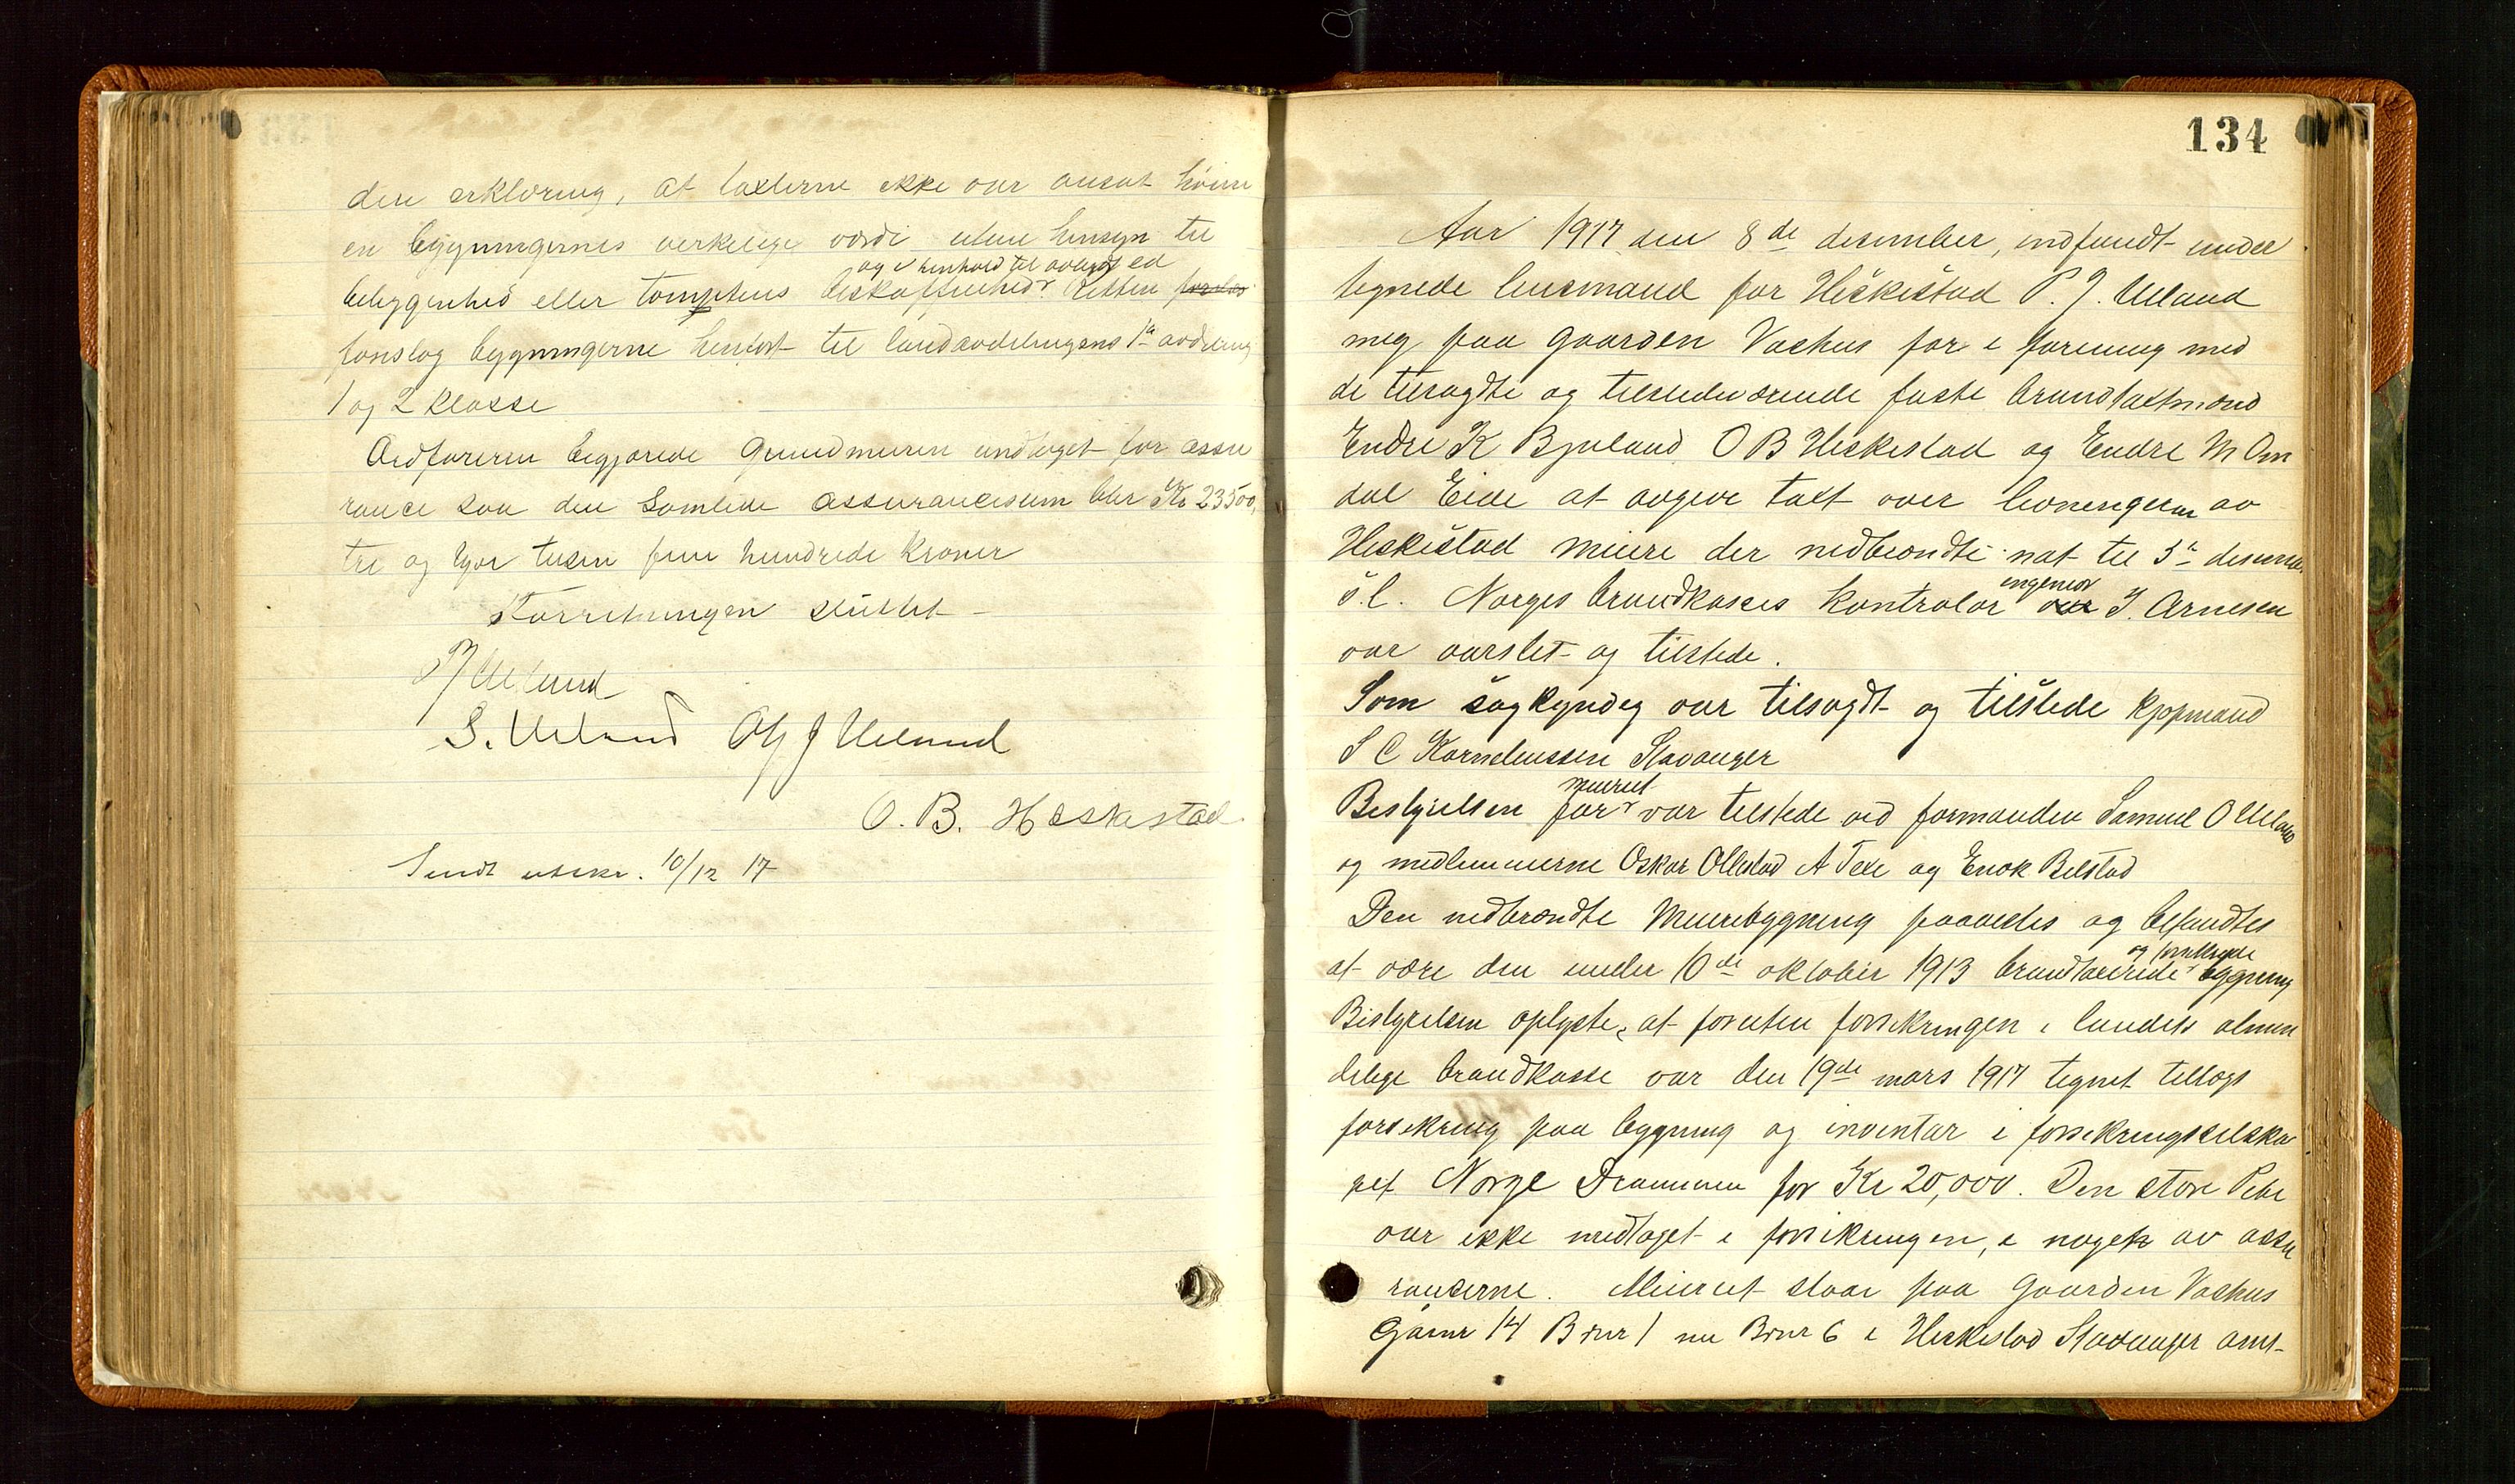 den erklæring, at taxterne ikke var ansat høiere
en bygningernes verkelige værdi uten hensyn til
og i henhold til avlagt ed
beliggenhed eller tomptens beskaffenhed. Retten foreslo
foreslog bygningerne henført til landavdelingens 1ste avdeling
1 og 2 klasse
Ordføreren begjærede grundmuren undtaget for assu
rance saa den samlede assurancesum blir Kr 23500,
tre og tyve tusen fem hundrede kroner
Forretningen sluttet
P J Ueland
S. Ueland Olf J Ueland
O. B. Heskestad
Sendt utskr. 10/12 17
134
Aar 1917 den 8de desember, indfandt under
tegnede lensmand for Heskestad P. J. Ueland
meg paa gaarden Vashus for i forening med
de tilsagdte og tilstedeværende faste brandtaxtmænd
Endre K Bjuland O B Heskestad og Endre M Om
dal Eide at avgive taxt over levningerne av
Heskestad meieri der nedbrændte nat til 3de desemb.
ingeniør
s.l. Norges brandkasses kontrolør var J. Arnesen
var varslet og tilstede.
Som sagkyndig var tilsagdt og tilstede kjøpmand
S C Korneliussen Stavanger
meieriet
Bestyrelsen for var tilstede ved formanden Samuel O Ueland
og medlemmerne Oskar Ollestad A Texe og Enok Bilstad
Den nedbrændte meieribygning paavistes og befandtes
og forsikrede
at være den under 10de oktober 1913 brandtaxerede bygning
Bestyrelsen oplyste, at foruten forsikringen i landets almin
delige brandkasse var den 19de mars 1917 tegnet tillægs
forsikring paa bygning og inventar i forsikringsselska
pet Norge Drammen for Kr 20,000. Den store Pibe
var ikke medtaget i forsikringen, i nogen av assu
rancerne. Meieriet staar paa gaarden Vashus
Gaarnr 14 Brnr 1 nu Brnr 6 i Heskestad Stavanger amt